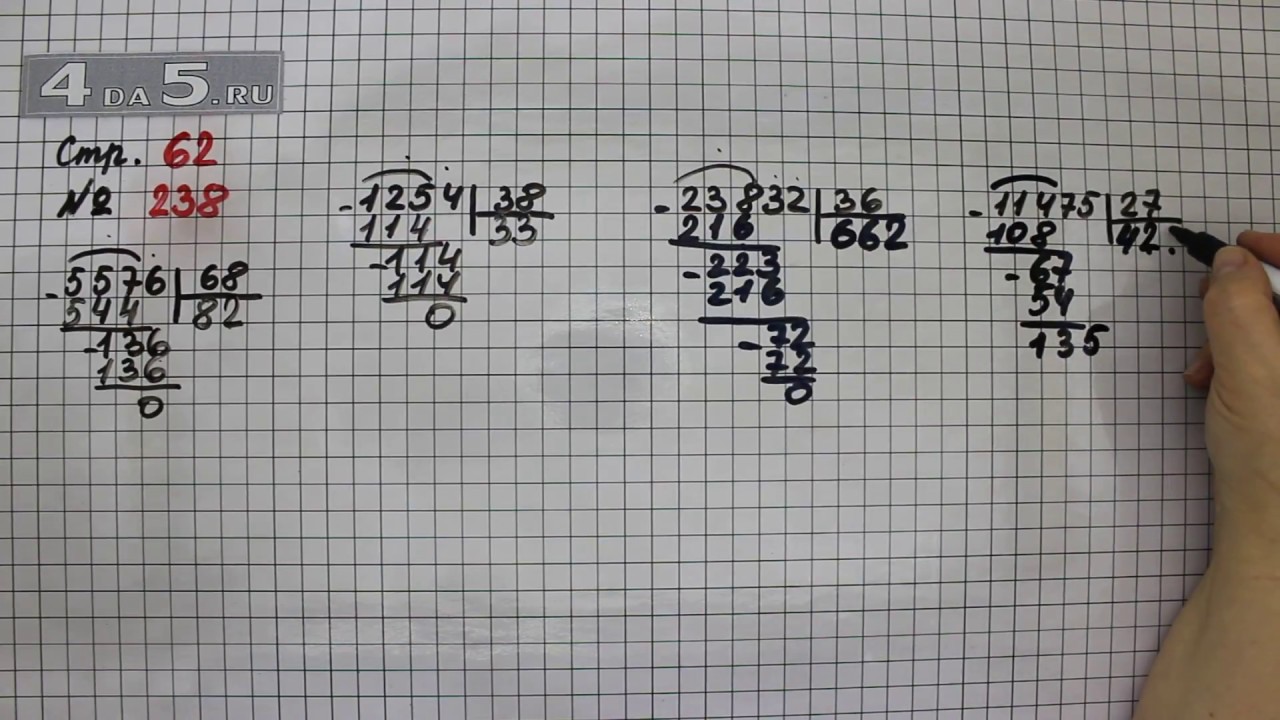 4 DA 5.RU
Стр. 62
№ 238
5576 68
544 82
-136
136
0
-1254 38
114 33
-114
114
0
-23832 36
216 662
-223
216
-72
72
0
-11475 27
108 42.
-67
54
135